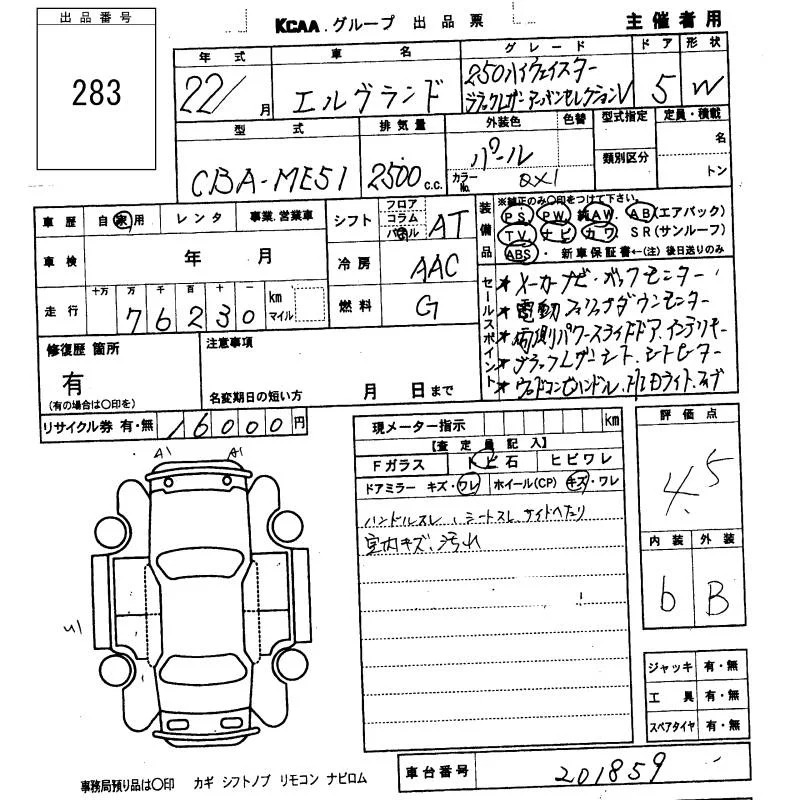 出品番号
283
KCAA.グループ 出品票
主催者用
年式 車名 グレード ドア 形状
22/ 月 エルグランド 250ハイウェイスター 5 W
ブラックレザーアーバンセレクションV
型式 排気量 外装色 色替 型式指定 定員・積載
CBA-ME51 2500 c.c. パール カラーNo. QX1 類別区分 名
トン
車歴 自家用 レンタ 事業.営業車
シフト フロア コラム AT
装備品 ※純正のみ○印をつけて下さい。
PS PW 純AW. AB(エアバック)
TV ナビ カワ SR(サンルーフ)
ABS ・ 新車保証書←(注)後日送りのみ
車検 年 月
冷房 AAC
走行 十万 万 千 百 十 一 km マイル
76230
燃料 G
セールスポイント
★メーカーナビ・バックモニター
★電動フリップダウンモニター
★両側パワースライドドア、インテリキー
★ブラックレザーシート、シートヒーター
★ウッドコンビハンドル、HIDライト、
修復歴 箇所
有
(有の場合は○印を)
注意事項
名変期日の短い方 月 日まで
リサイクル券 有・無 16000円
現メーター指示 km
【査定員記入】
Fガラス トビ石 ヒビワレ
ドアミラー キズ・ワレ ホイール(CP) キズ・ワレ
ハンドルスレ、シートスレ、サイドヘタリ
室内キズ、汚れ
評価点
4.5
内装 外装
b B
A1 A1
U1
ジャッキ 有・無
工具 有・無
スペアタイヤ 有・無
車台番号 201859
事務局預り品は○印 カギ シフトノブ リモコン ナビロム